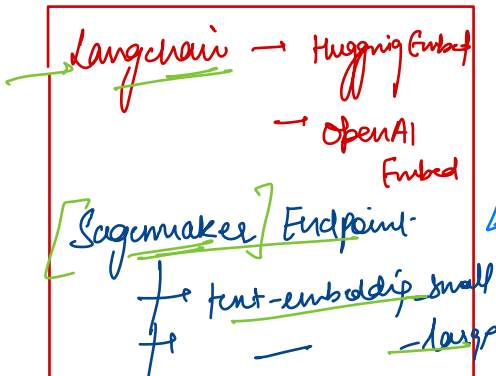 Langchain → Hugging Embed
→ OpenAI
Embed
[Sagemaker] Endpoint
→ text-embeddip_small
→ — -large